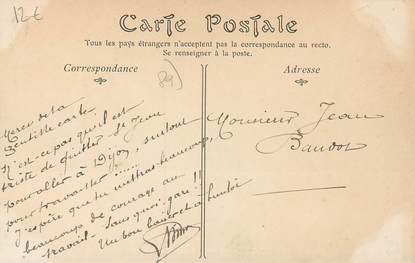 12€
Carte Postale
Tous les pays étrangers n'acceptent pas la correspondance au recto.
Se renseigner à la poste.
Correspondance
Adresse
89)
Merci de ta
gentille carte
N'est-ce pas qu'il est
triste de quitter St Jean
pour aller à Dijon, surtout
pour travailler .....
J'espère que tu mettras beaucoup,
beaucoup de courage au
travail - Sans quoi, gare !!
Un bon baiser et à bientôt
Monsieur Jean
Baudot